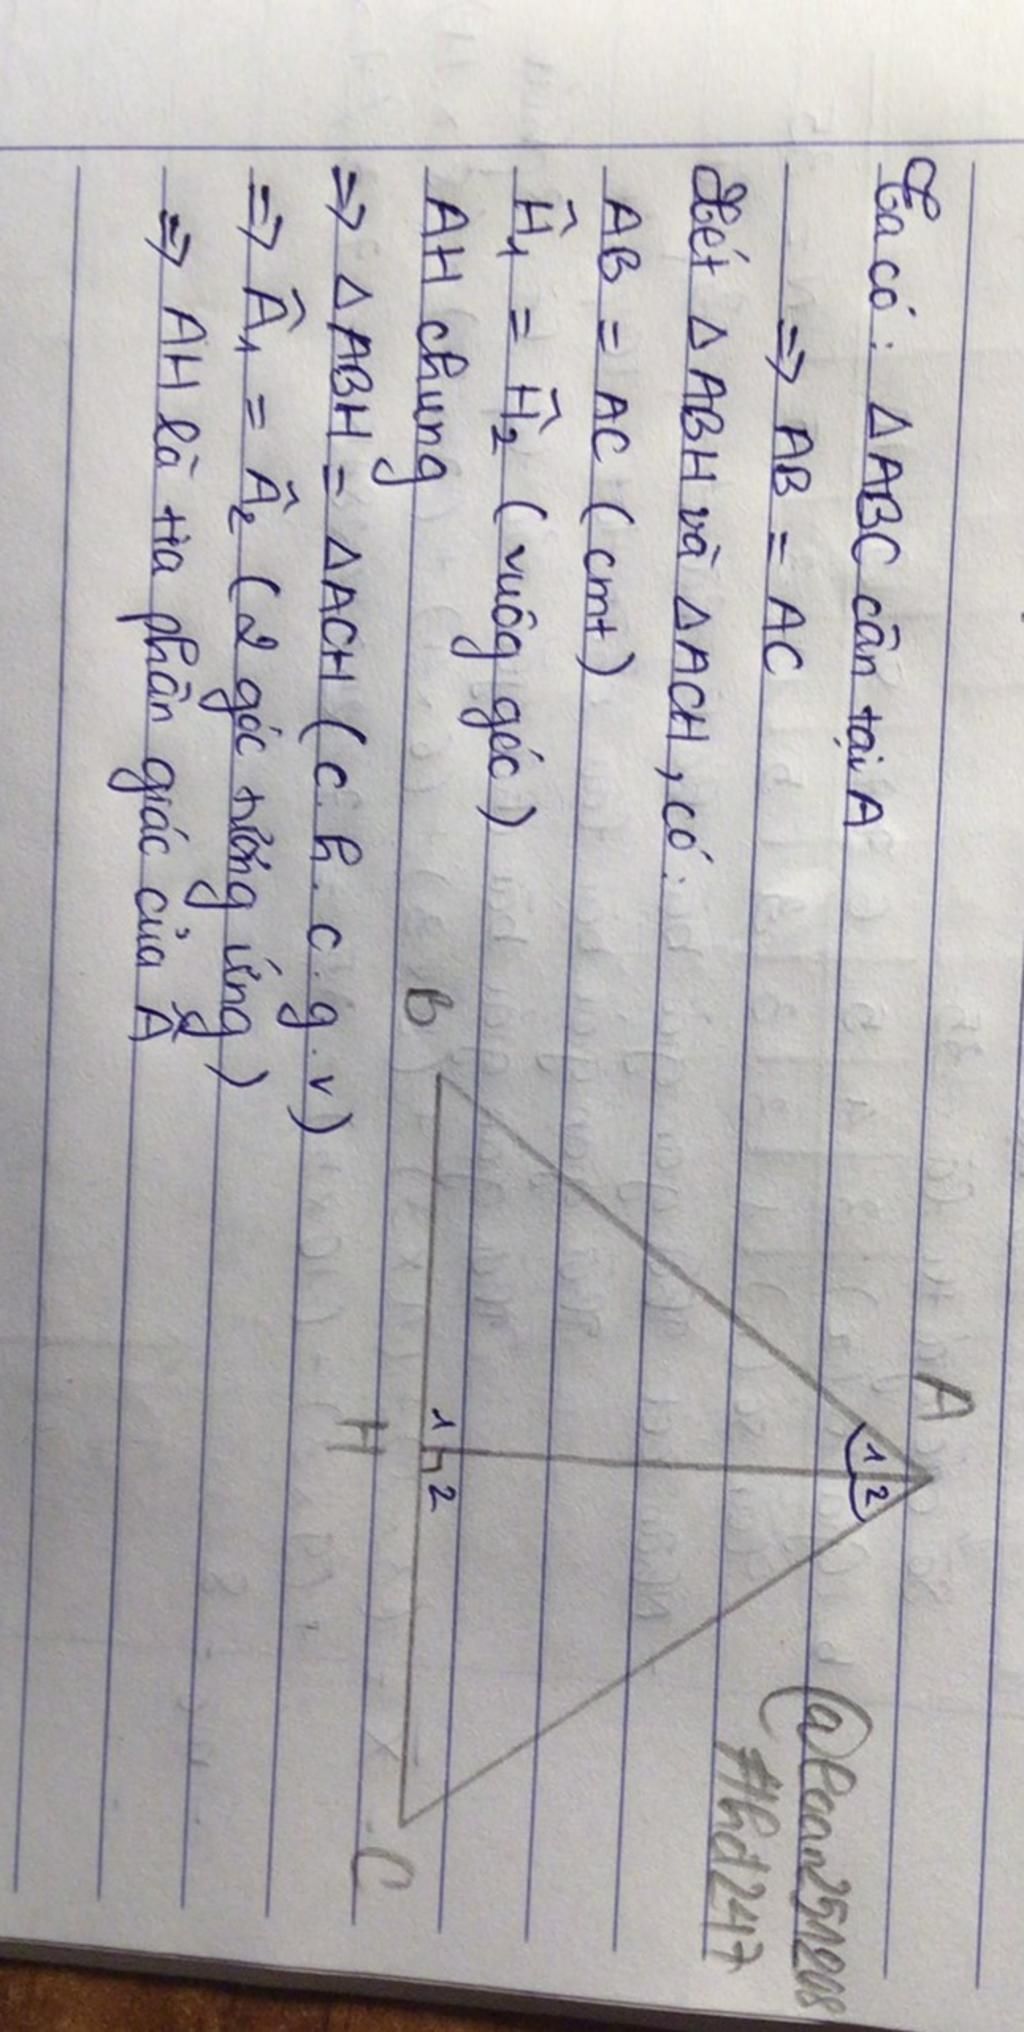 Ta có: ΔABC cân tại A
=> AB = AC
Xét ΔABH và ΔACH, có:
AB = AC (cmt)
Ĥ1 = Ĥ2 (vuôg góc)
AH chung
=> ΔABH = ΔACH (c.h.c.g.v)
=> Â1 = Â2 (2 góc tương ứng)
=> AH là tia phân giác của Â
A
1 2
B
1 2
H
C
#hd247